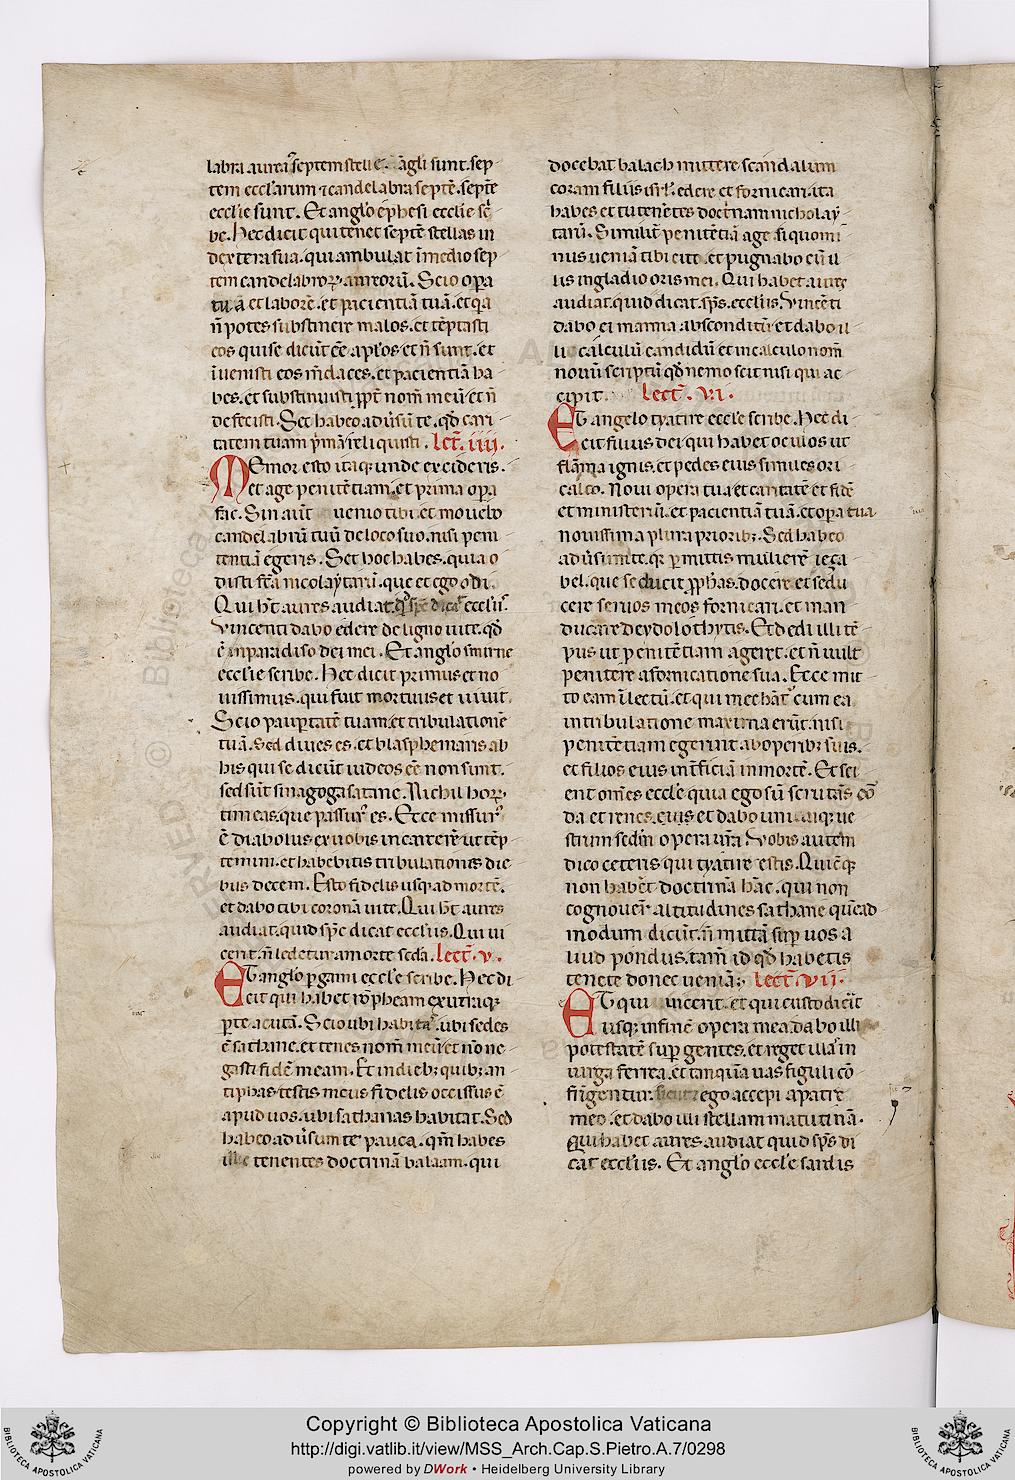 labra aurea septem stelle. āgli sunt. sep
tem eccl'arum ⁊ candelabra septē. septē
ecclie sunt. Et anglo ephesi ecclie sc̄
be. Hec dicit qui tenet septē stellas in
dextera sua. qui ambulat ī medio sep
tem candelabrorꝝ aureorū. Scio oꝑa
tua et laborē. et pacientiā tuā. et qa
n̄ potes sustinere malos. et tēptasti
eos qui se dicūt eē apl'os et n̄ sunt. et
īuenisti eos mēdaces. et pacientiā ha
bes. et sustinuisti ꝓpt̄ nom̄ meū et n̄
defecisti. Set habeo adūsū te. qd̄ cari
tatem tuam p'mā reliquisti. lect̄. iiii.
Memor esto itaqꝫ unde excideris.
et age penitētiam. et prima oꝑa
fac. Sin aūt venio tibi. et movebo
candelabrū tuū de loco suo. nisi peni
tentiā egeris. Set hoc habes. quia o
disti fc̄a nicolaytarū. que et ego odi.
Qui h̄t aures audiat. qd̄ sp̄c dicat eccl'iis.
Vincenti dabo edere de ligno vite. qd̄
ē in paradiso dei mei. Et anglo smirne
eccl'ie scribe. Hec dicit primus et no
vissimus. qui fuit mortuus et vivit.
Scio pauꝑtatē tuam. et tribulationē
tuā. Sed dives es. et blasphemaris ab
his qui se dicūt iudeos eē non sunt.
sed sūt sinagoga satane. Nichil horꝝ
timeas. que passur' es. Ecce missur'
ē diabolus ex vobis in carcerē ut tēp
temini. et habebitis tribulationes die
bus decem. Esto fidelis usqꝫ ad mortē.
et dabo tibi coronā vite. Qui h̄t aures
audiat. quid sp̄c dicat eccl'iis. Qui vi
cerit. n̄ ledetur a morte secd̄a. lect̄. v.
Et anglo ꝑgami eccl'e scribe. Hec di
cit qui habet rōpheam ex utraqꝫ
ꝑte acutā. Scio ubi habitas. ubi sedes
ē sathane. et tenes nom̄ meū et nō ne
gasti fidē meam. Et in diebꝫ quibꝫ an
tiphas testis meus fidelis occissus ē
apud vos. ubi sathanas habitat. Sed
habeo adv̄sum te pauca. qm̄ habes
illic tenentes doctrinā balaam. qui
docebat balach mittere scandalum
coram filiis isrl'. edere et fornicari. ita
habes et tu tenētes doct'nam nicholay
tarū. Similit̄ penitētiā age. si quomi
nus veniā tibi cito. et pugnabo cū il
lis in gladio oris mei. Qui habet aures
audiat. quid dicat. sp̄s. eccl'iis. Vincēti
dabo ei manna absconditū. et dabo il
li calculū candidū et in calculo nom̄
novū scriptū qd̄ nemo scit nisi qui ac
cipit. lect̄. vi.
Et angelo tyatire eccl'e scribe. Hec di
cit filius dei qui habet oculos ut
flāma ignis. et pedes eius similes ori
calco. Novi opera tua et caritatē et fidē
et ministeriū. et pacientiā tuā. et oꝑa tua
novissima plura prioribꝫ. Sed habeo
adv̄sum te. qꝛ ꝑmittis mulierē ieza
bel. que se dicit ꝓphās. docere et sedu
cere servos meos fornicari. et man
ducare de ydolothytis. Et dedi illi tē
pus ut penitētiam ageret. et n̄ vult
penitere a fornicatione sua. Ecce mit
to eam ī lectū. et qui mechāt' cum ea
in tribulatione maxima erūt. nisi
penitētiam egerint. ab operibꝫ suis.
et filios eius int̄ficiā in mortē. Et sci
ent om̄es eccl'e quia ego sū scrutās co
da et renes. eius et dabo unicuiqꝫ ve
strum secdm̄ opera ur̄a Vobis autem
dico ceteris qui tyatire estis. Quicūqꝫ
non habet doctrinā hāc. qui non
cognover̄ altitudines sathane quēad
modum dicūt. n̄ mittā suꝑ vos a
liud pondus. tam̄ id qd̄ habetis
tenete donec veniā; lect̄. vii.
Et qui vincerit. et qui custodierit
usqꝫ in finē opera mea. dabo illi
potestatē suꝑ gentes. et reget illas in
virga ferrea. et tanquā vas figuli cō
fr̄igentur. sicut et ego accepi a patre
meo. et dabo illi stellam matutinā.
Qui habet aures audiat quid sp̄s di
cat eccl'iis. Et anglo eccl'e sardis
Copyright © Biblioteca Apostolica Vaticana
http://digi.vatlib.it/view/MSS_Arch.Cap.S.Pietro.A.7/0298
powered by DWork • Heidelberg University Library
BIBLIOTECA APOSTOLICA VATICANA
BIBLIOTECA APOSTOLICA VATICANA